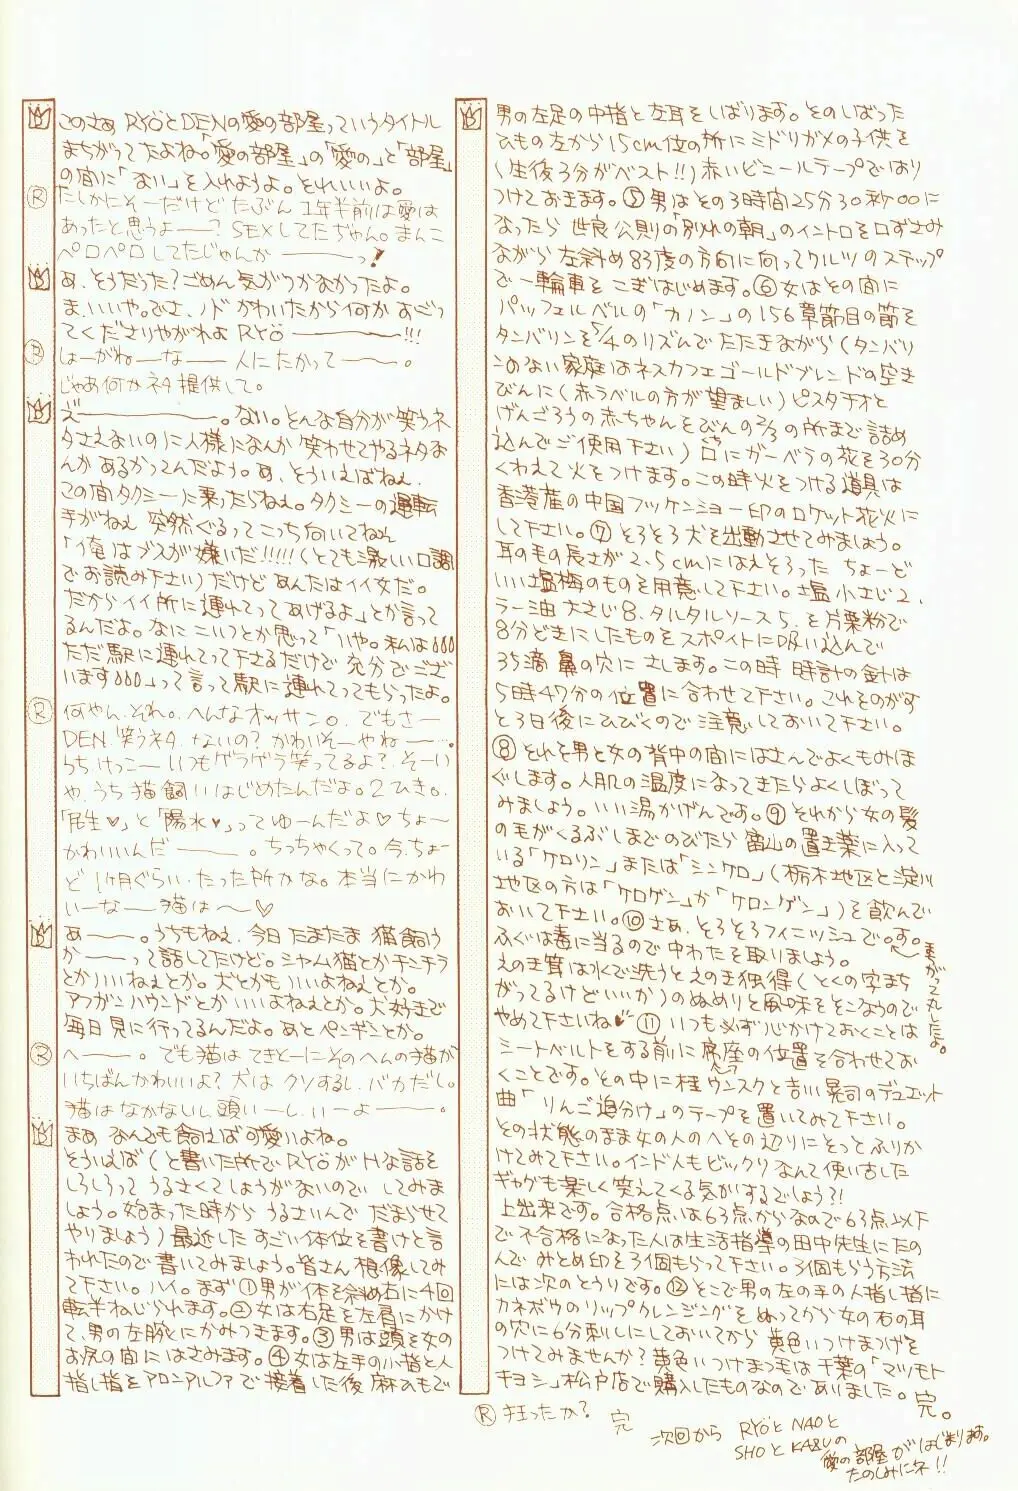 このさぁ RYÖとDENの愛の部屋っていうタイトル
まちがってたよね。「愛の部屋」の「愛の」と「部屋」
の間に「ない」を入れようよ。それいいよ。
Ⓡ たしかにそーだけど たぶん 1年半前は愛は
あったと思うよ――? SEXしてたぢゃん。まんこ
ペロペロしてたじゃんか―――っ!
あ、そうだった?ごめん気がつかなかったよ。
ま、いいや。でさ、ノドかわいたから何か おごっ
てくださりやがれよ RYÖ―――――!!!
Ⓡ しょーがねーなー 人にたかって――。
じゃあ何かネタ提供して。
え―――――。ない。そんな自分が笑うネ
タさえないのに人様になんか 笑わせてやるネタな
んか あるかってんだよう。あ、そういえばねぇ、
この間タクシーに乗ったらねぇ。タクシーの運転
手がねぇ 突然ぐるってこっち向いてねぇ
「俺はブスが嫌いだ!!!!!(とても激しい口調
でお読み下さい)だけど あんたはイイ女だ。
だからイイ所に連れてってあげるよ」とか言って
るんだよ。なにこいつとか思って「いや。私は
ただ駅に連れてって下さるだけで 充分でござ
います」って言って駅に連れてってもらったよ。
Ⓡ 何やん、それ。へんなオッサン。でもさー
DEN、笑うネタ、ないの?かわいそーやね――…。
うちけっこーいつもゲラゲラ笑ってるよ?そーい
や、うち猫飼いはじめたんだよ。2ひき。
「民生♥」と「陽水♥」ってゆーんだよ♡ちょ〜
かわいいんだ――――。ちっちゃくって。今、ちょー
ど 1ヶ月ぐらい、たった所かな。本当にかわ
いーなー猫は〜♡
あ――。うちもねぇ、今日 たまたま 猫飼う
か――って話してたけど。シャム猫とかチンチラ
とかいいねぇとか。犬とかも いいよねぇとか。
アフガンハウンドとか いいよねぇとか。犬好きで
毎日見に行ってるんだよ。あとペンギンとか。
Ⓡ へ――。でも猫は てきとーにそのへんの猫が
いちばんかわいいよ?犬は クソするし、バカだし。
猫はなかないし頭いーし、いーよ――。
まぁ なんでも飼えば可愛いよね。
そういえば(と書いた所でRYÖがHな話を
しろしろって うるさくてしょうがないので してみま
しょう。始まった時から うるさいんで だまらせて
やりましょう)最近した すごい体位を書けと言
われたので書いてみましょう。皆さん想像してみ
て下さい。ハイ。まず①男が体を斜め右に4回
転半ねじられます。②女は右足を左肩にかけ
て、男の左腕にかみつきます。③男は頭を女の
お尻の間にはさみます。④女は左手の小指と人
指し指をアロンアルファで接着した後 麻ひもで
男の左足の中指と左耳をしばります。そのしばった
ひもの左から15cm位の所にミドリガメの子供を
(生後3分がベスト!!)赤いビニールテープではり
つけておきます。⑤男はその3時間25分30秒00に
なったら 世良公則の「別れの朝」のイントロを口ずさみ
ながら左斜め83度の方向に向ってワルツのステップ
で一輪車をこぎはじめます。⑥女はその間に
パッフェルベルの「カノン」の156章節目の節を
タンバリンを5/4のリズムで たたきながら(タンバリ
ンのない家庭はネスカフェゴールドブレンドの空き
びんに(赤ラベルの方が望ましい)ピスタチオと
げんごろうの赤ちゃんをびんの2/3の所まで詰め
込んでご使用下さい)口にガーベラの花を30分
くわえて火をつけます。この時火をつける道具は
香港産の中国フッケンショー印のロケット花火に
して下さい。⑦そろそろ犬を出動させてみましょう。
耳の毛の長さが2.5cmにはえそろった ちょーど
いい塩梅のものを用意して下さい。塩小さじ2、
ラー油 大さじ8、タルタルソース5、を片栗粉で
8分どきにしたものをスポイトに吸い込んで
35滴 鼻の穴に さします。この時 時計の針は
5時47分の位置に合わせて下さい。これをのがす
と3日後にひびくので注意しておいて下さい。
⑧それを男と女の背中の間にはさんでよくもみほ
ぐします。人肌の温度になってきたらよくしぼって
みましょう。いい湯かげんです。⑨それから女の髪
の毛がくるぶしまでのびたら 富山の置き薬に入って
いる「ケロリン」または「シンケロ」(栃木地区と淀川
地区の方は「ケロゲン」か「ケロンゲン」)を飲んで
おいて下さい。⑩さあ、そろそろフィニッシュで。す。
ふぐは毒に当るので中わたを取りましょう。
えのき茸は水で洗うとえのき独得(とくの字まち
がってるけどいいか)のぬめりと風味をそこなうので
やめて下さいね♥⑪いつも必ず心かけておくことは
シートベルトをする前に座席の位置を合わせてお
くことです。その中に桂ウンスクと吉川晃司のデュエット
曲「りんご追分け」のテープを置いてみて下さい。
その状態のまま女の人のへその辺りにそっとふりか
けてみて下さい。インド人もビックリなんて使い古した
ギャグも楽しく笑えてくる気がするでしょう?!
上出来です。合格点は63点からなので63点以下
で不合格になった人は生活指導の田中先生にたの
んで みとめ印を3個もらって下さい。3個もらう方法
には次のとうりです。⑫そこで男の左の手の人指し指に
カネボウのリップカレンジングをぬってから女の右の耳
の穴に6分刺しにしておいてから 黄色いつけまつげを
つけてみませんか?黄色いつけまつ毛は千葉の「マツモト
キヨシ」松戸店で購入したものなのでありました。完。
Ⓡ 狂ったか? 完
次回から RYÖと NAOと
SHOとKAZUの
愛の部屋がはじまります。
たのしみにネ!!